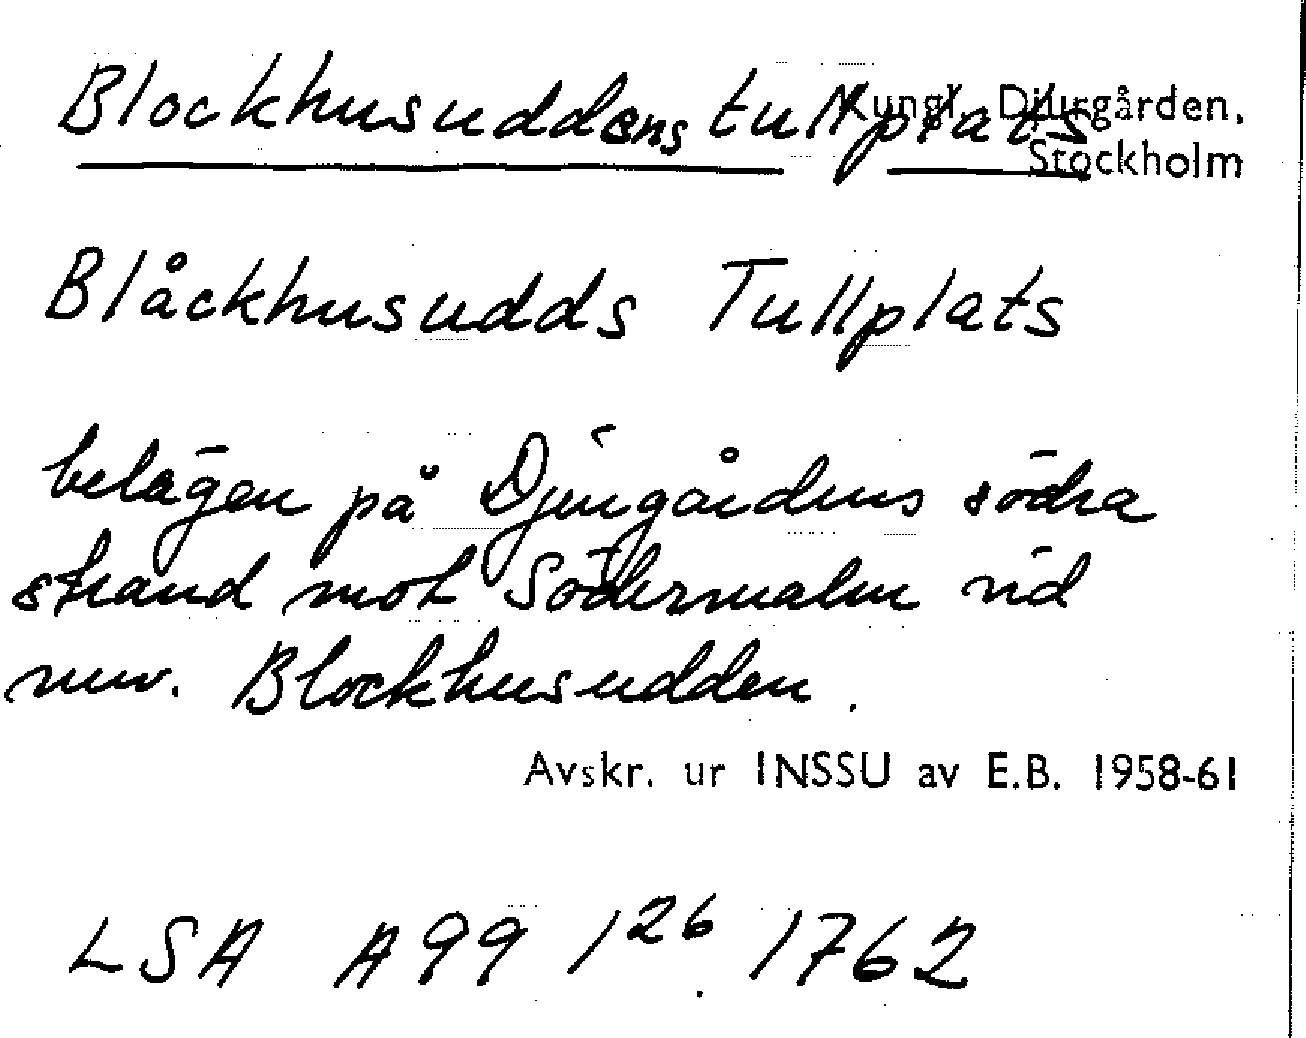 Blockhusuddens tullplats
Kungl. Djurgården,
Stockholm
Blåckhusudds Tullplats
belägen på Djurgårdens södra
strand mot Södermalm vid
nuv. Blockhusudden.
Avskr. ur INSSU av E.B. 1958-61
LSA A99 1²⁶ 1762